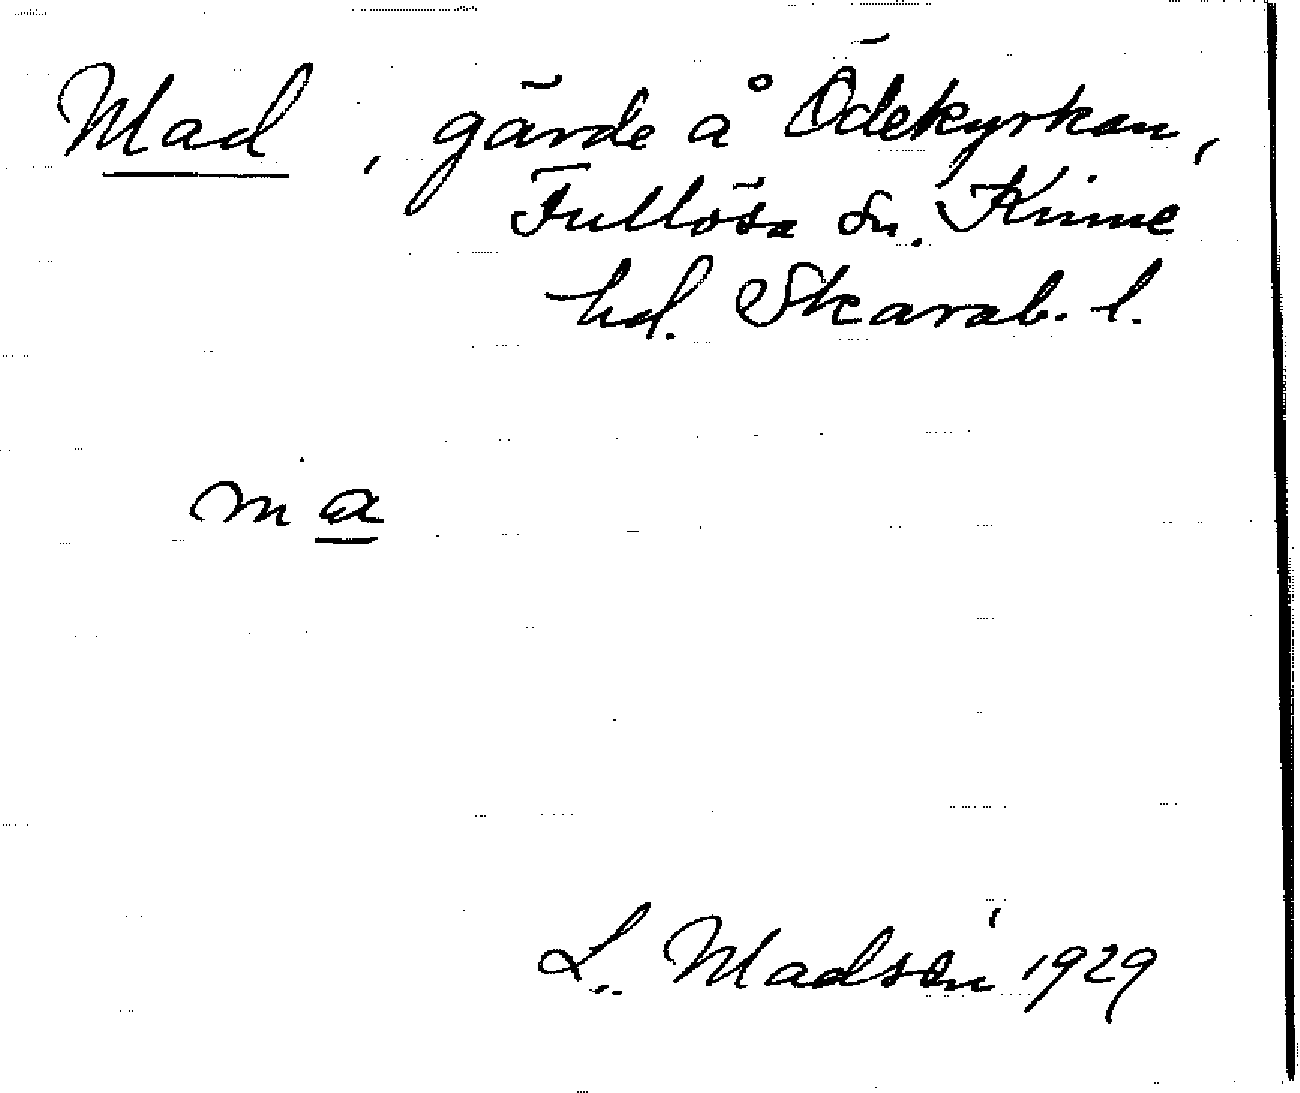 Mad, gärde å Ödekyrkan,
Fullösa sn. Kinne
hd. Skarab. l.
ma
L. Madsén 1929